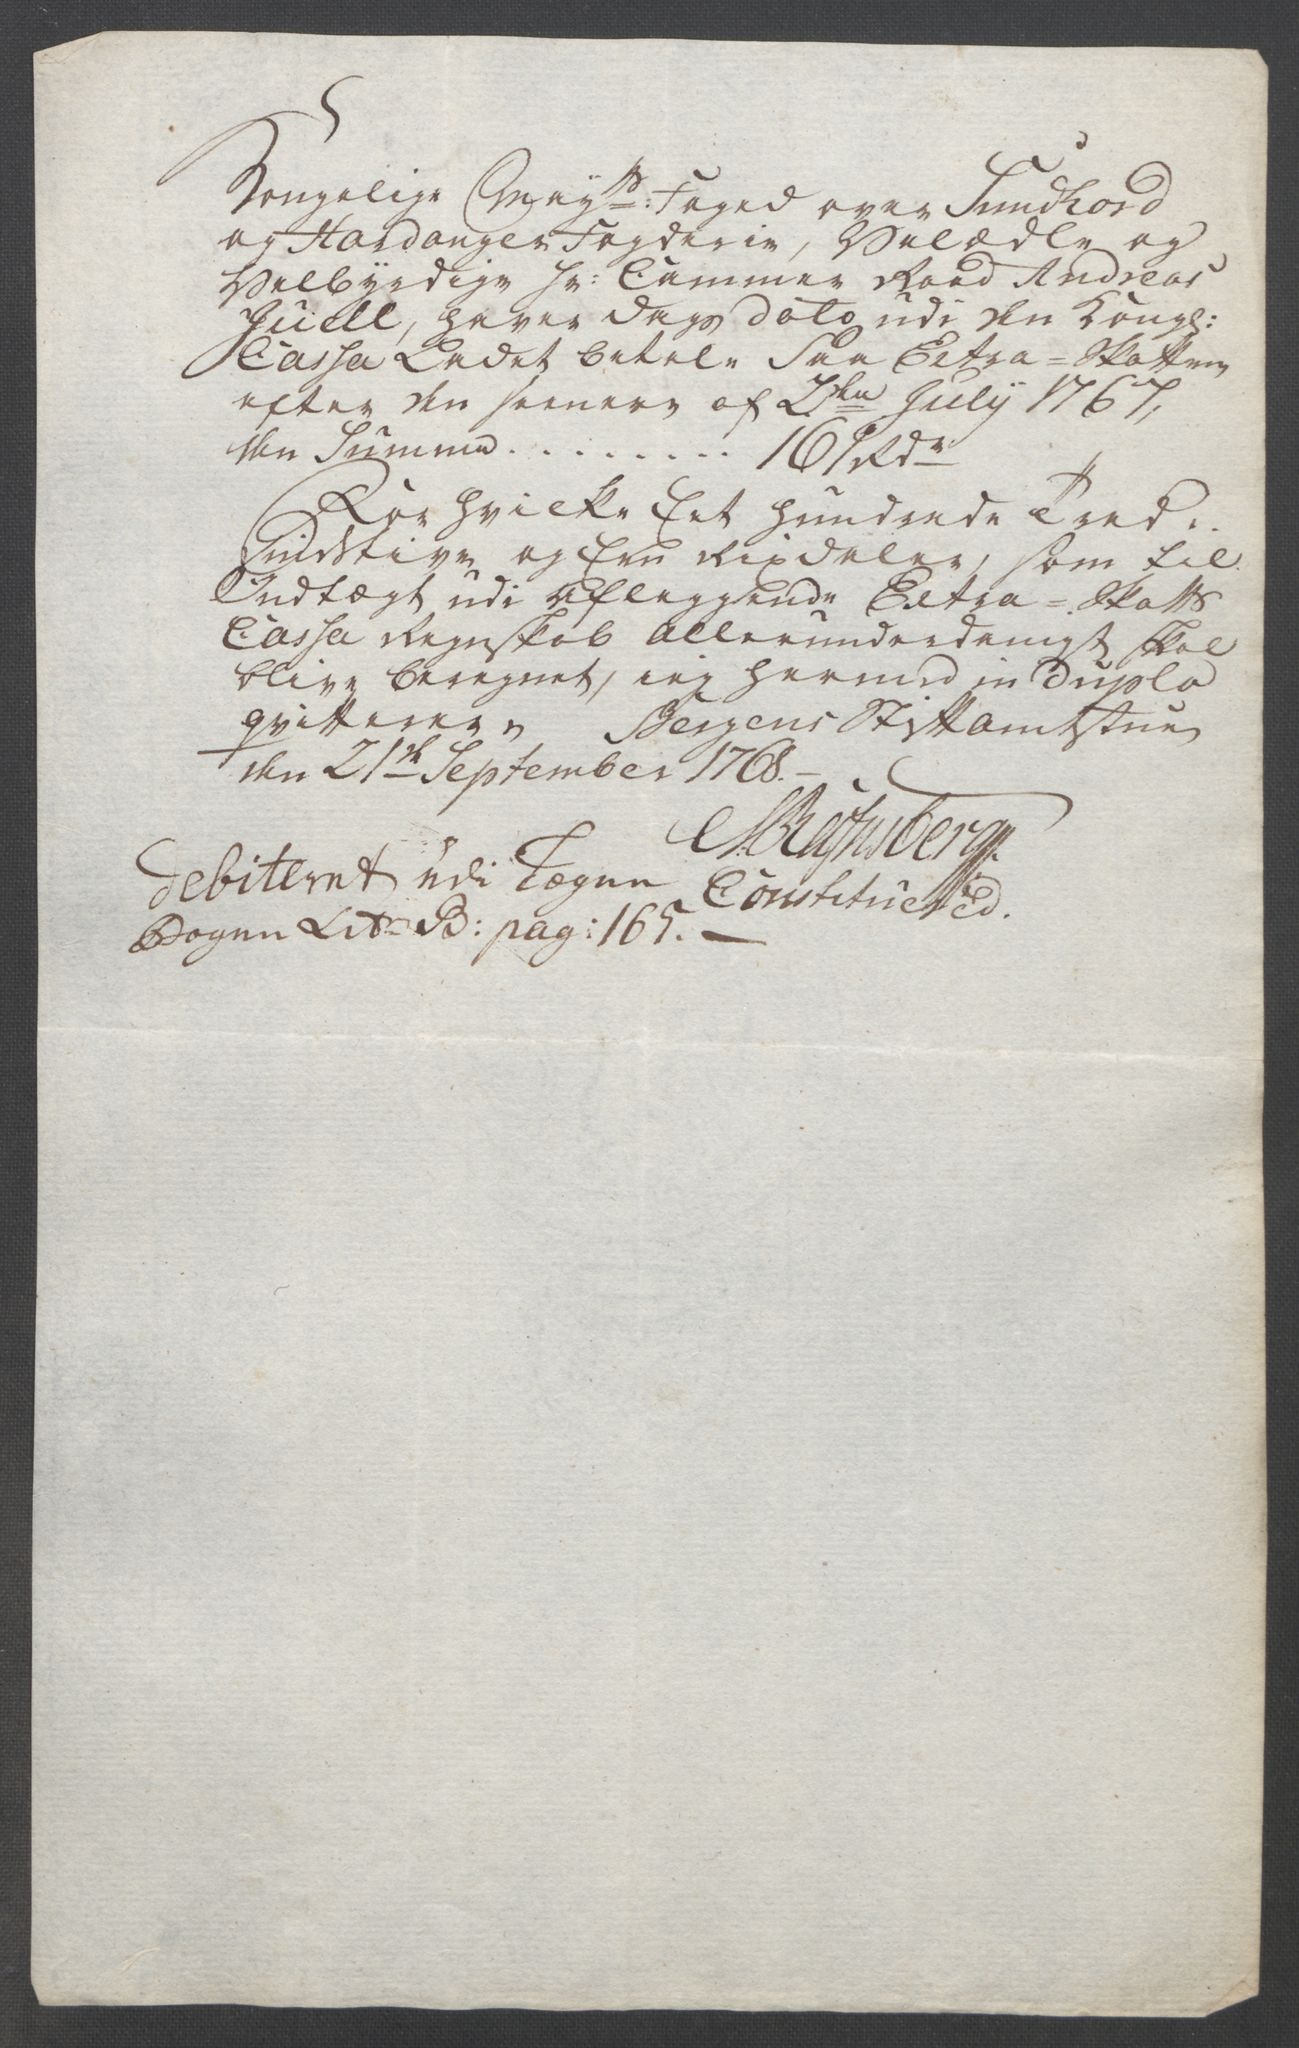 Kongelige Mayts: Foged over Sundhord
og Hardanger Fogderie, Velædle og
Velbyrdige Hr: Cammer Raad Andreas
Juell, haver dags dato udi den Kongl:
Cassa Ladet betale Paa Extra=Skatten
efter den seenere af 2den July 1767,
den Summa ......... 161 Rdr
For hvilke Eet hundrede Tred..
Sindstive og Een Rixdaler, som til
Indtægt udi aflæggende Extra=Skatts
Cassa Regnskab allerunderdanigst skal
blive beregnet, ieg hermed in duplo
qvitterer. Bergens Stiftamtstue
den 21de September 1768.
Constituered.
debiteret udi Tegne
Bogen Litr B: pag: 165.